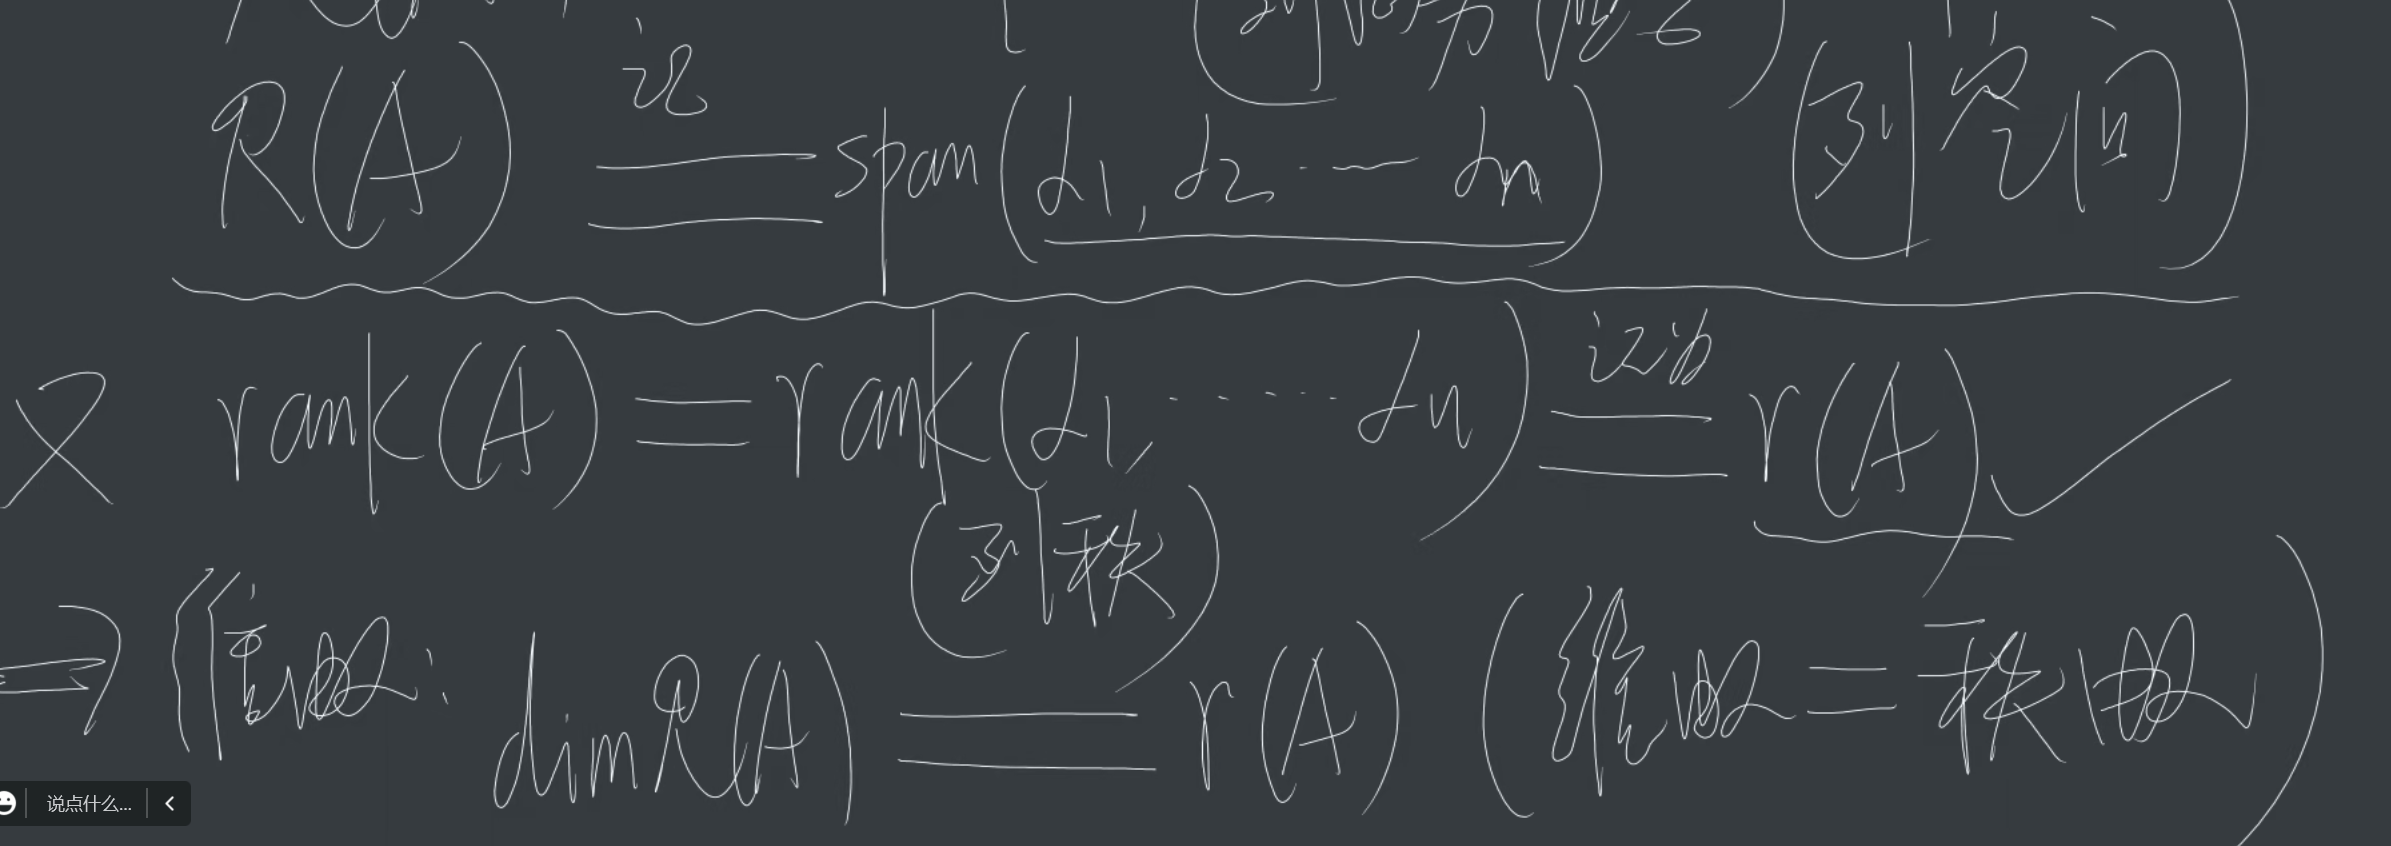 R(A) 记 = span(α1, α2 ··— αn) (列空间)
又 rank(A) = rank(α1, ······ αn) 记为 = r(A) ✓
(列秩)
=> 有维数: dim R(A) = r(A) (维数 = 秩数)
说点什么...